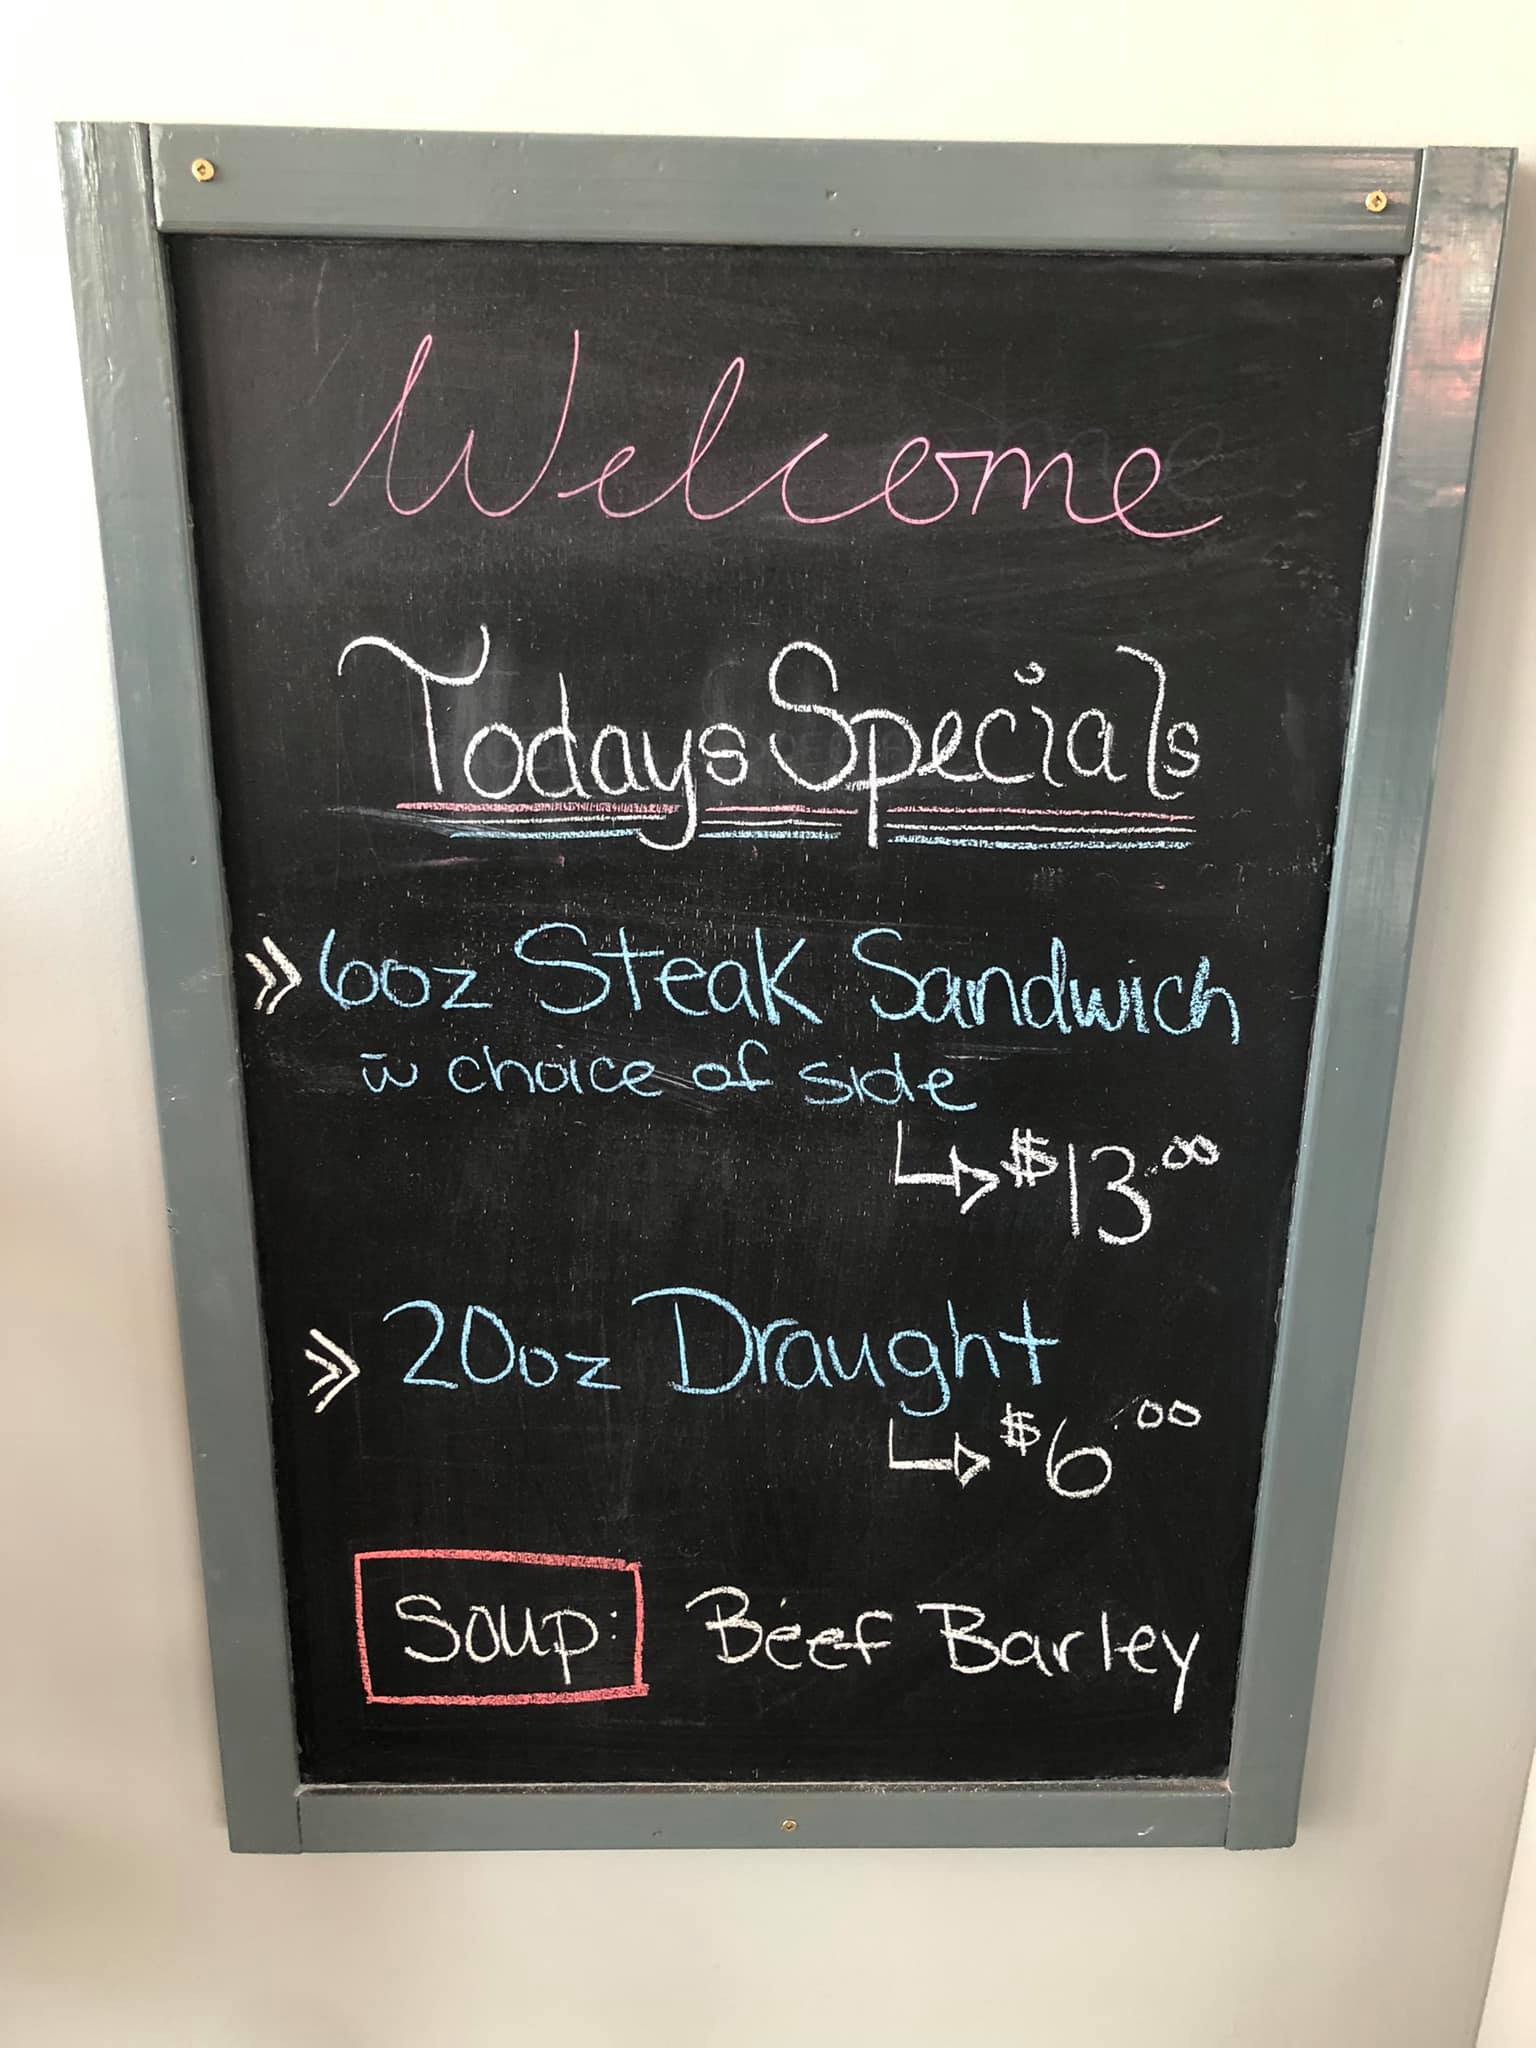 Welcome
Todays Specials
» 6oz Steak Sandwich
w̄ choice of side
↳ $13.00
» 20oz Draught
↳ $6.00
Soup: Beef Barley